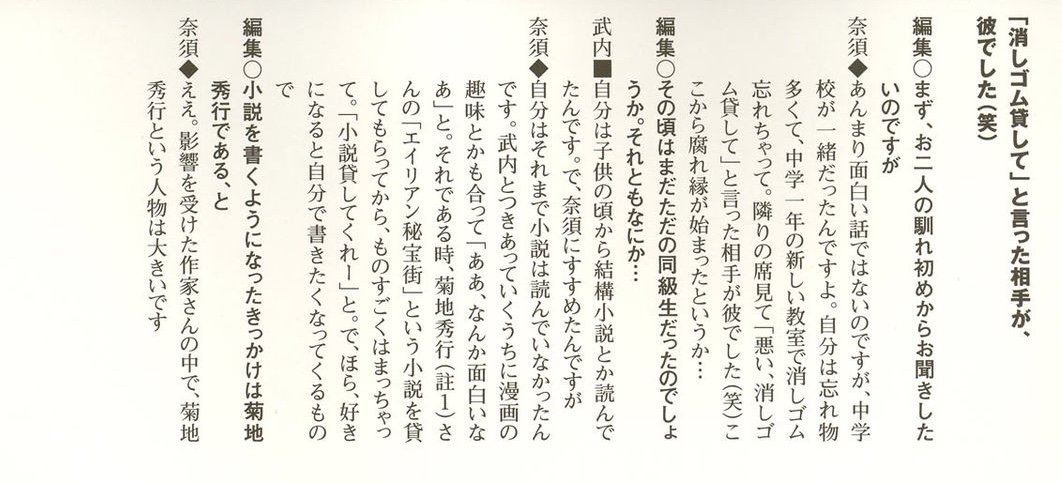 「消しゴム貸して」と言った相手が、
彼でした（笑）
編集○まず、お二人の馴れ初めからお聞きした
いのですが
奈須◆あんまり面白い話ではないのですが、中学
校が一緒だったんですよ。自分は忘れ物
多くて、中学一年の新しい教室で消しゴム
忘れちゃって。隣りの席見て「悪い、消しゴ
ム貸して」と言った相手が彼でした（笑）こ
こから腐れ縁が始まったというか…
編集○その頃はまだただの同級生だったのでしょ
うか。それともなにか…
武内■自分は子供の頃から結構小説とか読んで
たんです。で、奈須にすすめたんですが
奈須◆自分はそれまで小説は読んでいなかったん
です。武内とつきあっていくうちに漫画の
趣味とかも合って「ああ、なんか面白いな
あ」と。それである時、菊地秀行（註1）さ
んの「エイリアン秘宝街」という小説を貸
してもらってから、ものすごくはまっちゃっ
て。「小説貸してくれー」と。で、ほら、好き
になると自分で書きたくなってくるもの
で
編集○小説を書くようになったきっかけは菊地
秀行である、と
奈須◆ええ。影響を受けた作家さんの中で、菊地
秀行という人物は大きいです